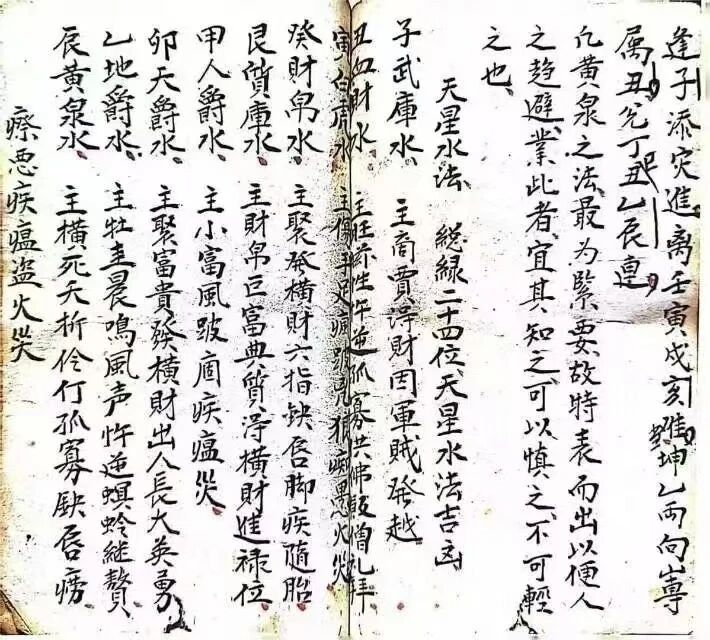 逢子添灾進離壬寅戌亥难坤乙両向尋
属丑兌丁巳丑乙辰連
凢黄泉之法最为緊要故特表而出以便人
之趋避業此者宜其知之可以慎之不可輕
之也
天星水法 総録二十四位天星水法吉凶
子武庫水 主商賈淂財因軍賊発越
丑血財水 主旺 性忤逆孤寡共佛 僧礼拜
寅白虎水 主傷手足瘋跛 痴愚火災
癸財帛水 主聚発横財六指缺唇脚疾隨胎
艮質庫水 主財帛巨富典質淂横財進禄位
甲人爵水 主小富風跛痼疾瘟災
卯天爵水 主聚富貴發横財出人長大英勇
乙地爵水 主牡 晨鳴風声忤逆螟蛉継贅
辰黄泉水 主横死夭折伶仃孤寡缺唇痨
瘵恶疾瘟盗火災